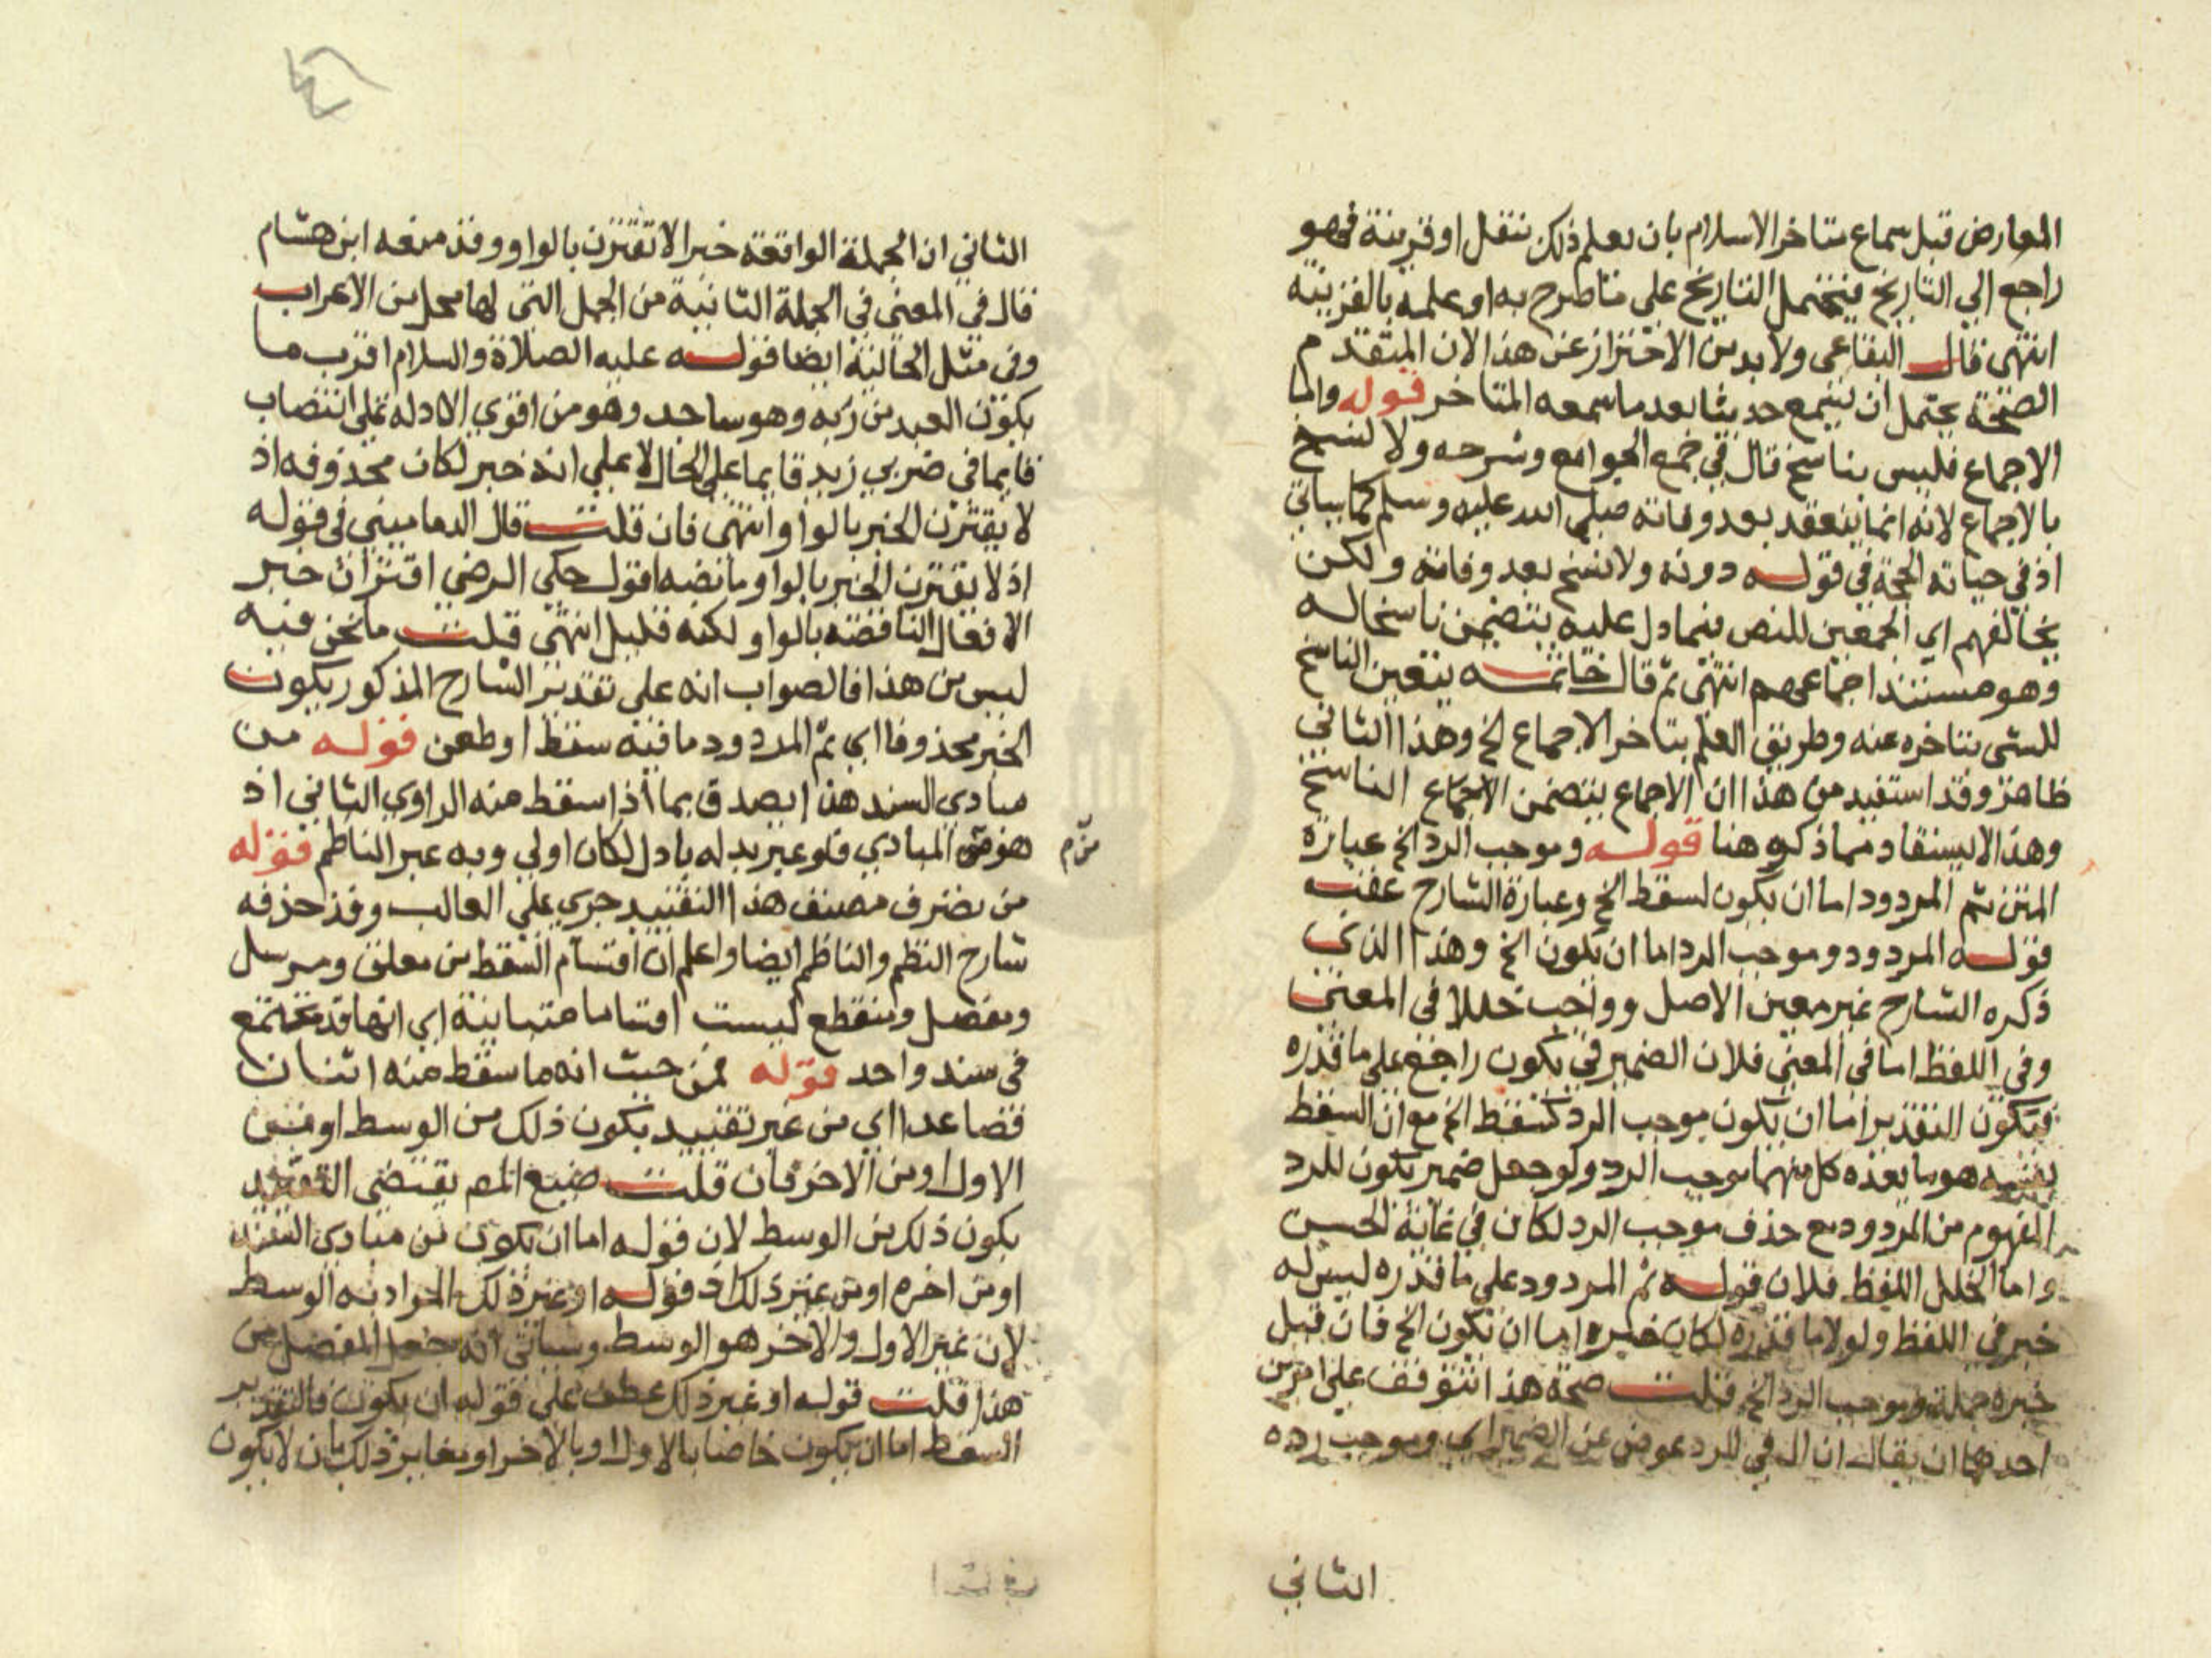 المعارض قبل سماع متاخر الاسلام بان يعلم ذلك بنقل او قرينة فهو
راجع الي التاريخ فيتحمل التاريخ علي ما طرح به او علمه بالقرينة
انتهى قال البقاعي ولا بد من الاحتراز عن هذا لان المتقدم
الصحبة يحتمل ان يسمع حديثا بعد ما سمعه المتاخر قوله واما
الاجماع فليس بناسخ قال في جمع الجوامع وشرحه ولا نسخ
بالاجماع لانه انما ينعقد بعد وفاته صلي الله عليه وسلم كما سياتي
اذ في حياته الحجة في قوله دونه ولا نسخ بعد وفاته ولكن
مخالفهم اي المجمعين للنص فيما دل عليه يتضمن ناسخا له
وهو مستند اجماعهم انتهى ثم قال خاتمه يتعين الناسخ
للشي بتاخره عنه وطريق العلم بتاخر الاجماع الخ وهذا الثاني
ظاهر وقد استفيد من هذا ان الاجماع يتضمن الاجماع الناسخ
وهذا لا يستفاد مما ذكره هنا قوله وموجب الرد الخ عبارة
المتن ثم المردود اما ان يكون لسقط الخ وعبارة الشارح عقت
قوله المردود وموجب الرد اما ان يكون الخ وهذا الذي
ذكره الشارح غير معين الاصل وواجب خللا في المعني
وفي اللفظ اما في المعني فلان الضمير في يكون راجع علي ما قدره
فيكون التقدير اما ان يكون موجب الرد لسقط الخ مع ان السقط
نفسه هو وما بعده كل منهما موجب الرد ولو جعل ضمير يكون للرد
المفهوم من المردود مع حذف موجب الرد لكان في غاية الحسن
واما الخلل اللفظ فلان قوله ثم المردود علي ما قدره ليس له
خبر في اللفظ ولولا ما قدره لكان خبره اما ان يكون الخ فان قيل
خبره جملة وموجب الرد الخ قلت صحة هذا تتوقف علي امرين
احدهما ان يقال ان ال في للرد عوض عن الضمير اي وموجب رده
الثاني
الثاني ان الجملة الواقعة خبرا لا تقترن بالواو وقد منعه ابن هشام
قال في المغني في الجملة الثانية من الجمل التي لها محل من الاعراب
وفي مثل الحالية ايضا قوله عليه الصلاة والسلام اقرب ما
يكون العبد من ربه وهو ساجد وهو من اقوي الادله علي انتصاب
قايما في ضربي زيد قايما علي الحال لا علي انه خبر لكان محذوفه اذ
لا يقترن الخبر بالواو انتهى فان قلت قال الدماميني في قوله
اذ لا يقترن الخبر بالواو ما نصه اقول حكي الرضي اقتران خبر
الافعال الناقصه بالواو ولكنه قليل انتهى قلت ما نحن فيه
ليس من هذا فالصواب انه علي تقدير الشارح المذكور يكون
الخبر محذوفا اي ثم المردود ما فيه سقط او طعن قوله من
مبادي السند هذا يصدق بما اذا سقط منه الراوي الثاني اذ
هو من المبادي فلو عبر بدله باول لكان اولي وبه عبر الناظم قوله
من تصرف مصنف هذا التقييد جري علي الغالب وقد حذفه
شارح النظم والناظم ايضا واعلم ان اقسام السقط من معلق ومرسل
ومعضل ومنقطع ليست اقساما متباينة اي انها قد تجتمع
في سند واحد قوله فمن حيث انه ما سقط منه اثنان
فصاعدا اي من غير تقييد بكون ذلك من الوسط او من
الاول او من الاخر فان قلت صنيع المص يقتضي التقييد
بكون ذلك من الوسط لان قوله اما ان يكون من مبادي السند
او من اخره او من غير ذلك اذ قوله او غير ذلك المراد به الوسط
لان غير الاول والاخر هو الوسط وسياتي انه جعل المعضل من
هذا قلت قوله او غير ذلك عطف علي قوله ان يكون فالتقدير
السقط اما ان يكون خاصا بالاول او بالاخر او يغاير ذلك بان لا يكون